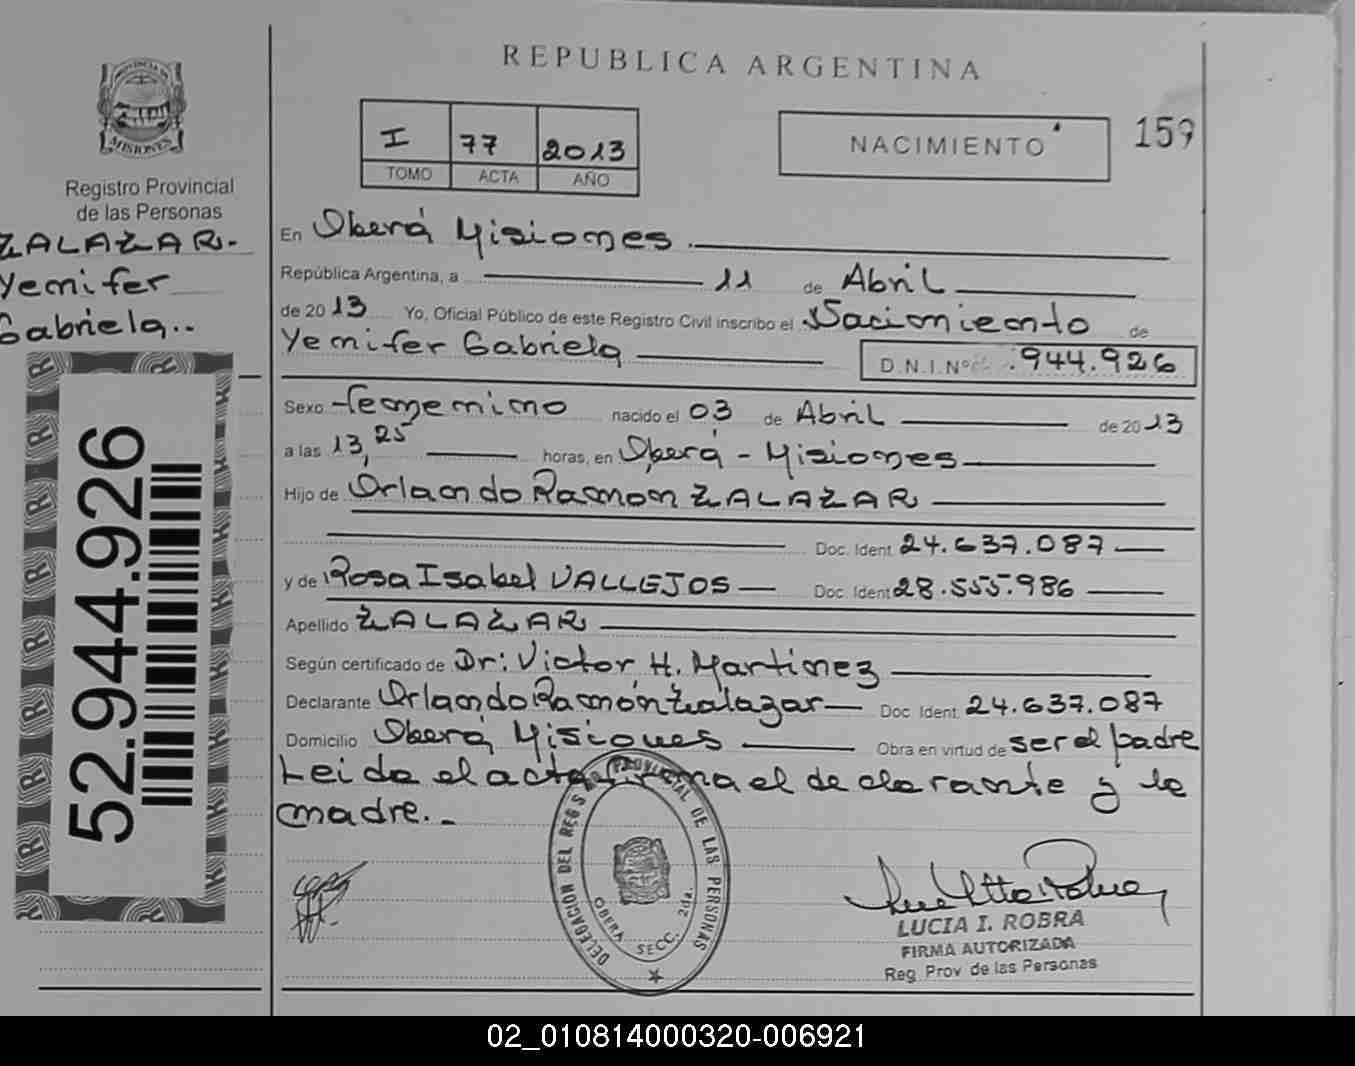 REPUBLICA ARGENTINA
PROVINCIA DE
MISIONES
Registro Provincial
de las Personas
ZALAZAR.-
Yemifer
Gabriela..
52.944.926
I 77 2013
TOMO ACTA AÑO
NACIMIENTO
159
En Oberá Misiones.
República Argentina, a 11 de Abril
de 2013 Yo, Oficial Público de este Registro Civil inscribo el Nacimiento de
Yemifer Gabriela D.N.I.Nº .944.926
Sexo femenino nacido el 03 de Abril de 2013
a las 13,25 horas, en Oberá - Misiones
Hijo de Orlando Ramón ZALAZAR
Doc. Ident. 24.637.087
y de Rosa Isabel VALLEJOS Doc. Ident 28.555.986
Apellido ZALAZAR
Según certificado de Dr: Victor H. Martinez
Declarante Orlando Ramón Zalazar Doc Ident. 24.637.087
Domicilio Oberá Misiones Obra en virtud de ser el padre
Leida el acta firma el declarante y la
madre.-
DELEGACION DEL REG PROVINCIAL DE LAS PERSONAS
OBERA SECC. 2da.
LUCIA I. ROBRA
FIRMA AUTORIZADA
Reg Prov de las Personas
02_010814000320-006921